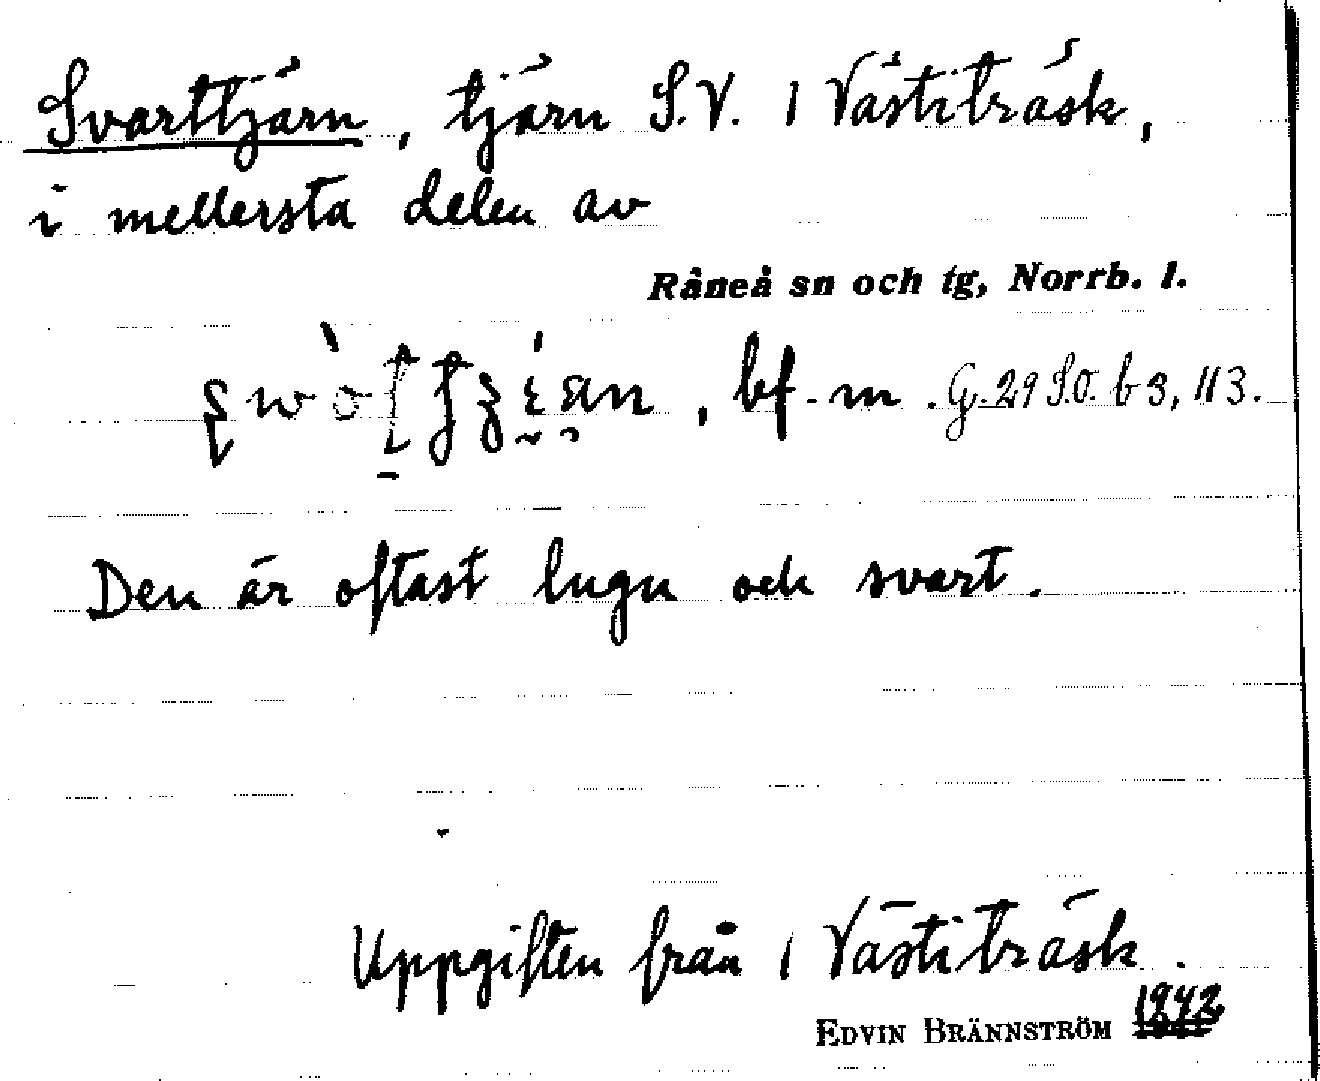 Svarttjärn, tjärn S.V. 1 Västiträsk,
i mellersta delen av
Råneå sn och tg, Norrb. l.
, bf. m. G. 29 S.O. b 3, 113.
Den är oftast lugn och svart.
Uppgiften från 1 Västiträsk.
EDVIN BRÄNNSTRÖM 1942